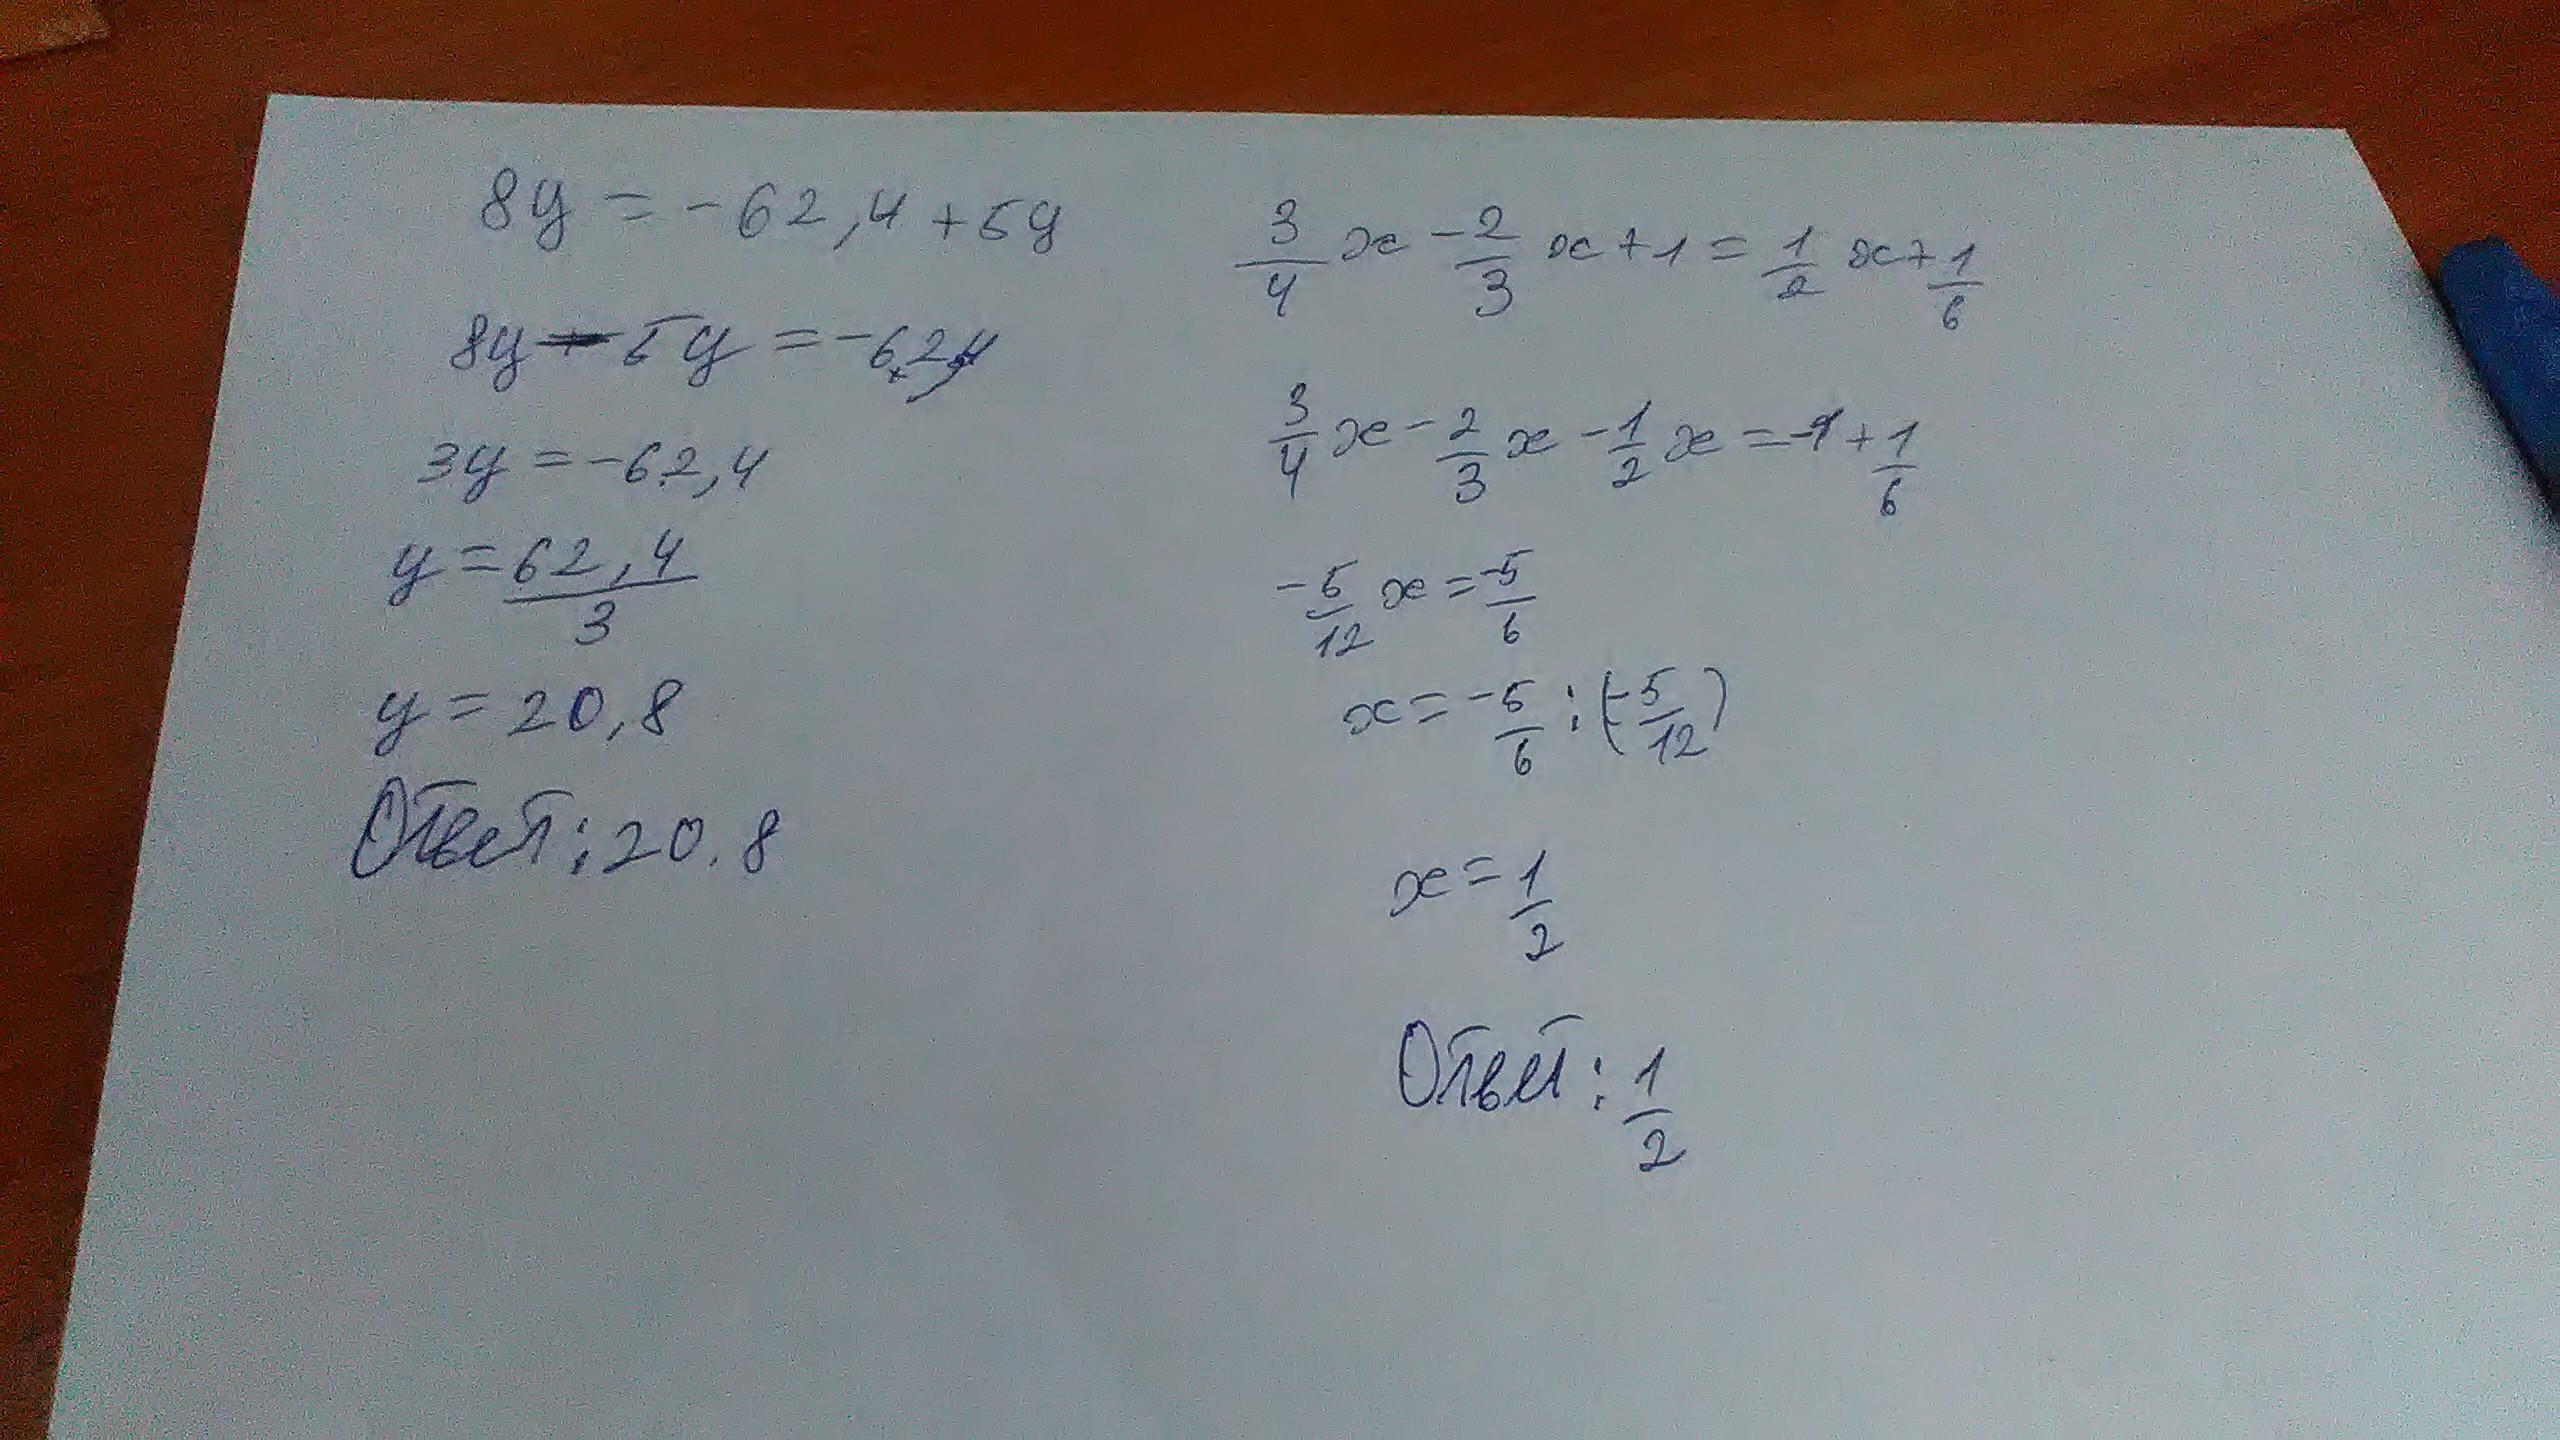 8y = -62,4 + 5y
8y - 5y = -62,4
3y = -62,4
y = 62,4/3
y = 20,8
Ответ: 20.8
3/4 x - 2/3 x + 1 = 1/2 x + 1/6
3/4 x - 2/3 x - 1/2 x = -1 + 1/6
-5/12 x = -5/6
x = -5/6 : (-5/12)
x = 1/2
Ответ: 1/2